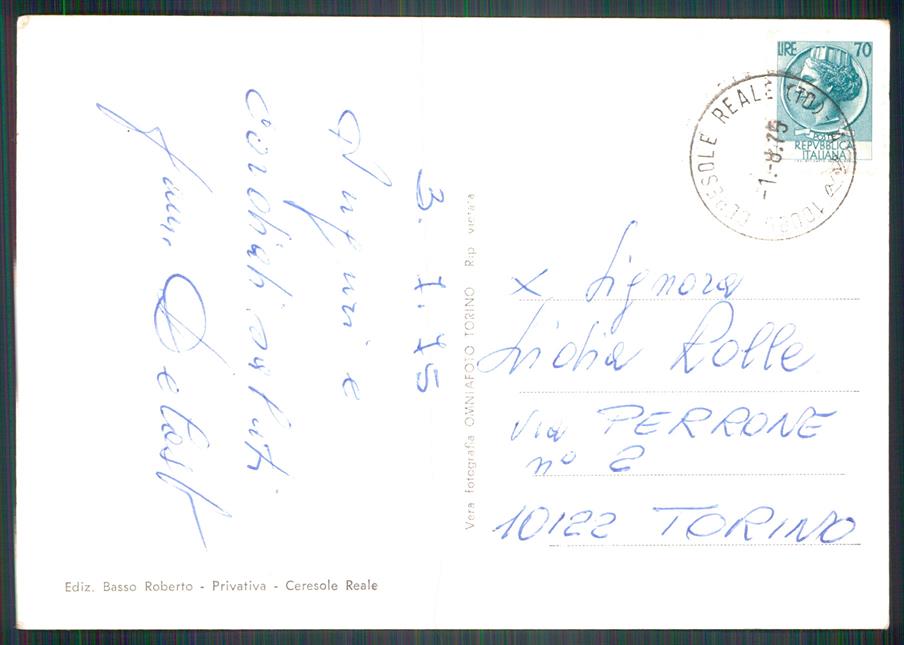 Auguri e
cordialissimi
fam. Detas
3. 1.75
Vera fotografia OMNIAFOTO TORINO Rip. vietata
LIRE 70
POSTE
REPVBBLICA
ITALIANA
CERESOLE REALE (TO)
-1.-8.75
x Signora
Lidia Rolle
Via PERRONE
n° 2
10122 TORINO
Ediz. Basso Roberto - Privativa - Ceresole Reale